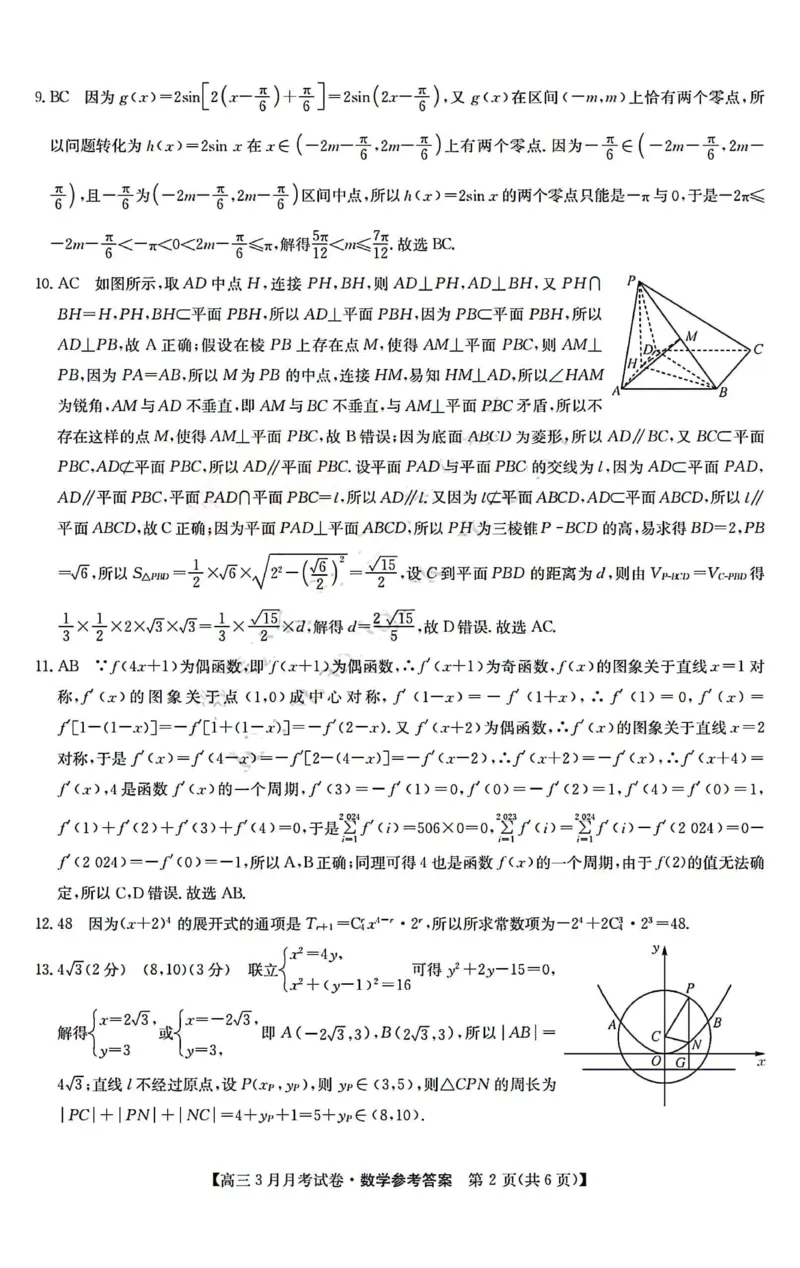 9. BC 因为 g(x)=2sin[2(x−π/6)+π/6]=2sin(2x−π/6),又 g(x)在区间(−m,m)上恰有两个零点,所
以问题转化为 h(x)=2sin x 在 x∈(−2m−π/6,2m−π/6)上有两个零点. 因为−π/6∈(−2m−π/6,2m−
π/6),且−π/6为(−2m−π/6,2m−π/6)区间中点,所以 h(x)=2sin x 的两个零点只能是−π与0,于是−2π≤
−2m−π/6<−π<0<2m−π/6≤π,解得5π/12<m≤7π/12. 故选 BC.
10. AC 如图所示,取 AD 中点 H,连接 PH,BH,则 AD⊥PH,AD⊥BH,又 PH∩
BH=H,PH,BH⊂平面 PBH,所以 AD⊥平面 PBH,因为 PB⊂平面 PBH,所以
AD⊥PB,故 A 正确;假设在棱 PB 上存在点 M,使得 AM⊥平面 PBC,则 AM⊥
PB,因为 PA=AB,所以 M 为 PB 的中点,连接 HM,易知 HM⊥AD,所以∠HAM
为锐角,AM 与 AD 不垂直,即 AM 与 BC 不垂直,与 AM⊥平面 PBC 矛盾,所以不
存在这样的点 M,使得 AM⊥平面 PBC,故 B 错误;因为底面 ABCD 为菱形,所以 AD∥BC,又 BC⊂平面
PBC,AD⊄平面 PBC,所以 AD∥平面 PBC. 设平面 PAD 与平面 PBC 的交线为 l,因为 AD⊂平面 PAD,
AD∥平面 PBC,平面 PAD∩平面 PBC=l,所以 AD∥l. 又因为 l⊄平面 ABCD,AD⊂平面 ABCD,所以 l∥
平面 ABCD,故 C 正确;因为平面 PAD⊥平面 ABCD,所以 PH 为三棱锥 P-BCD 的高,易求得 BD=2,PB
=√6,所以 S△PBD=1/2×√6×√(2²−(√6/2)²)=√15/2,设 C 到平面 PBD 的距离为 d,则由 V_{P-BCD}=V_{C-PBD}得
1/3×1/2×2×√3×√3=1/3×√15/2×d,解得 d=2√15/5,故 D 错误. 故选 AC.
P
M
D
C
H
A
B
11. AB ∵f(4x+1)为偶函数,即 f(x+1)为偶函数,∴f′(x+1)为奇函数,f(x)的图象关于直线 x=1 对
称,f′(x)的图象关于点(1,0)成中心对称,f′(1−x)=−f′(1+x),∴f′(1)=0,f′(x)=
f′[1−(1−x)]=−f′[1+(1−x)]=−f′(2−x). 又 f′(x+2)为偶函数,∴f′(x)的图象关于直线 x=2
对称,于是 f′(x)=f′(4−x)=−f′[2−(4−x)]=−f′(x−2),∴f′(x+2)=−f′(x),∴f′(x+4)=
f′(x),4 是函数 f′(x)的一个周期,f′(3)=−f′(1)=0,f′(0)=−f′(2)=1,f′(4)=f′(0)=1,
f′(1)+f′(2)+f′(3)+f′(4)=0,于是∑_{i=1}^{2 024}f′(i)=506×0=0,∑_{i=1}^{2 023}f′(i)=∑_{i=1}^{2 024}f′(i)−f′(2 024)=0−
f′(2 024)=−f′(0)=−1,所以 A,B 正确;同理可得 4 也是函数 f(x)的一个周期,由于 f(2)的值无法确
定,所以 C,D 错误. 故选 AB.
12. 48 因为(x+2)⁴ 的展开式的通项是 T_{r+1}=C₄^r x^{4−r}·2^r,所以所求常数项为−2⁴+2C₄³·2³=48.
13. 4√3(2分) (8,10)(3分) 联立{x²=4y, x²+(y−1)²=16 可得 y²+2y−15=0,
解得{x=2√3, y=3 或{x=−2√3, y=3, 即 A(−2√3,3),B(2√3,3),所以|AB|=
4√3;直线 l 不经过原点,设 P(x_P,y_P),则 y_P∈(3,5),则△CPN 的周长为
|PC|+|PN|+|NC|=4+y_P+1=5+y_P∈(8,10).
y
P
A
B
C
N
O
G
x
【高三 3 月月考试卷·数学参考答案 第 2 页(共 6 页)】